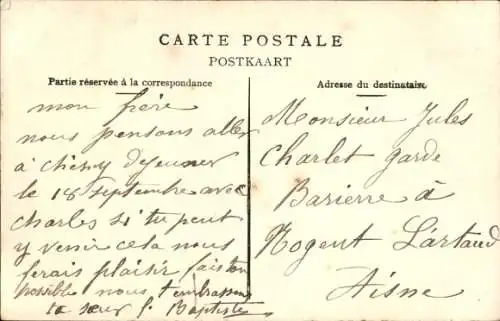 CARTE POSTALE
POSTKAART
Partie réservée à la correspondance
Adresse du destinataire
mon frère
nous pensons aller
à chésy dejeuner
le 18 septembre avec
charles si tu peut
y venir cela nous
ferais plaisir fais ton
possible nous t'embrassons
ta sœur f. Baptiste
Monsieur Jules
Charlet garde
Barierre à
Nogent L'artaud
Aisne